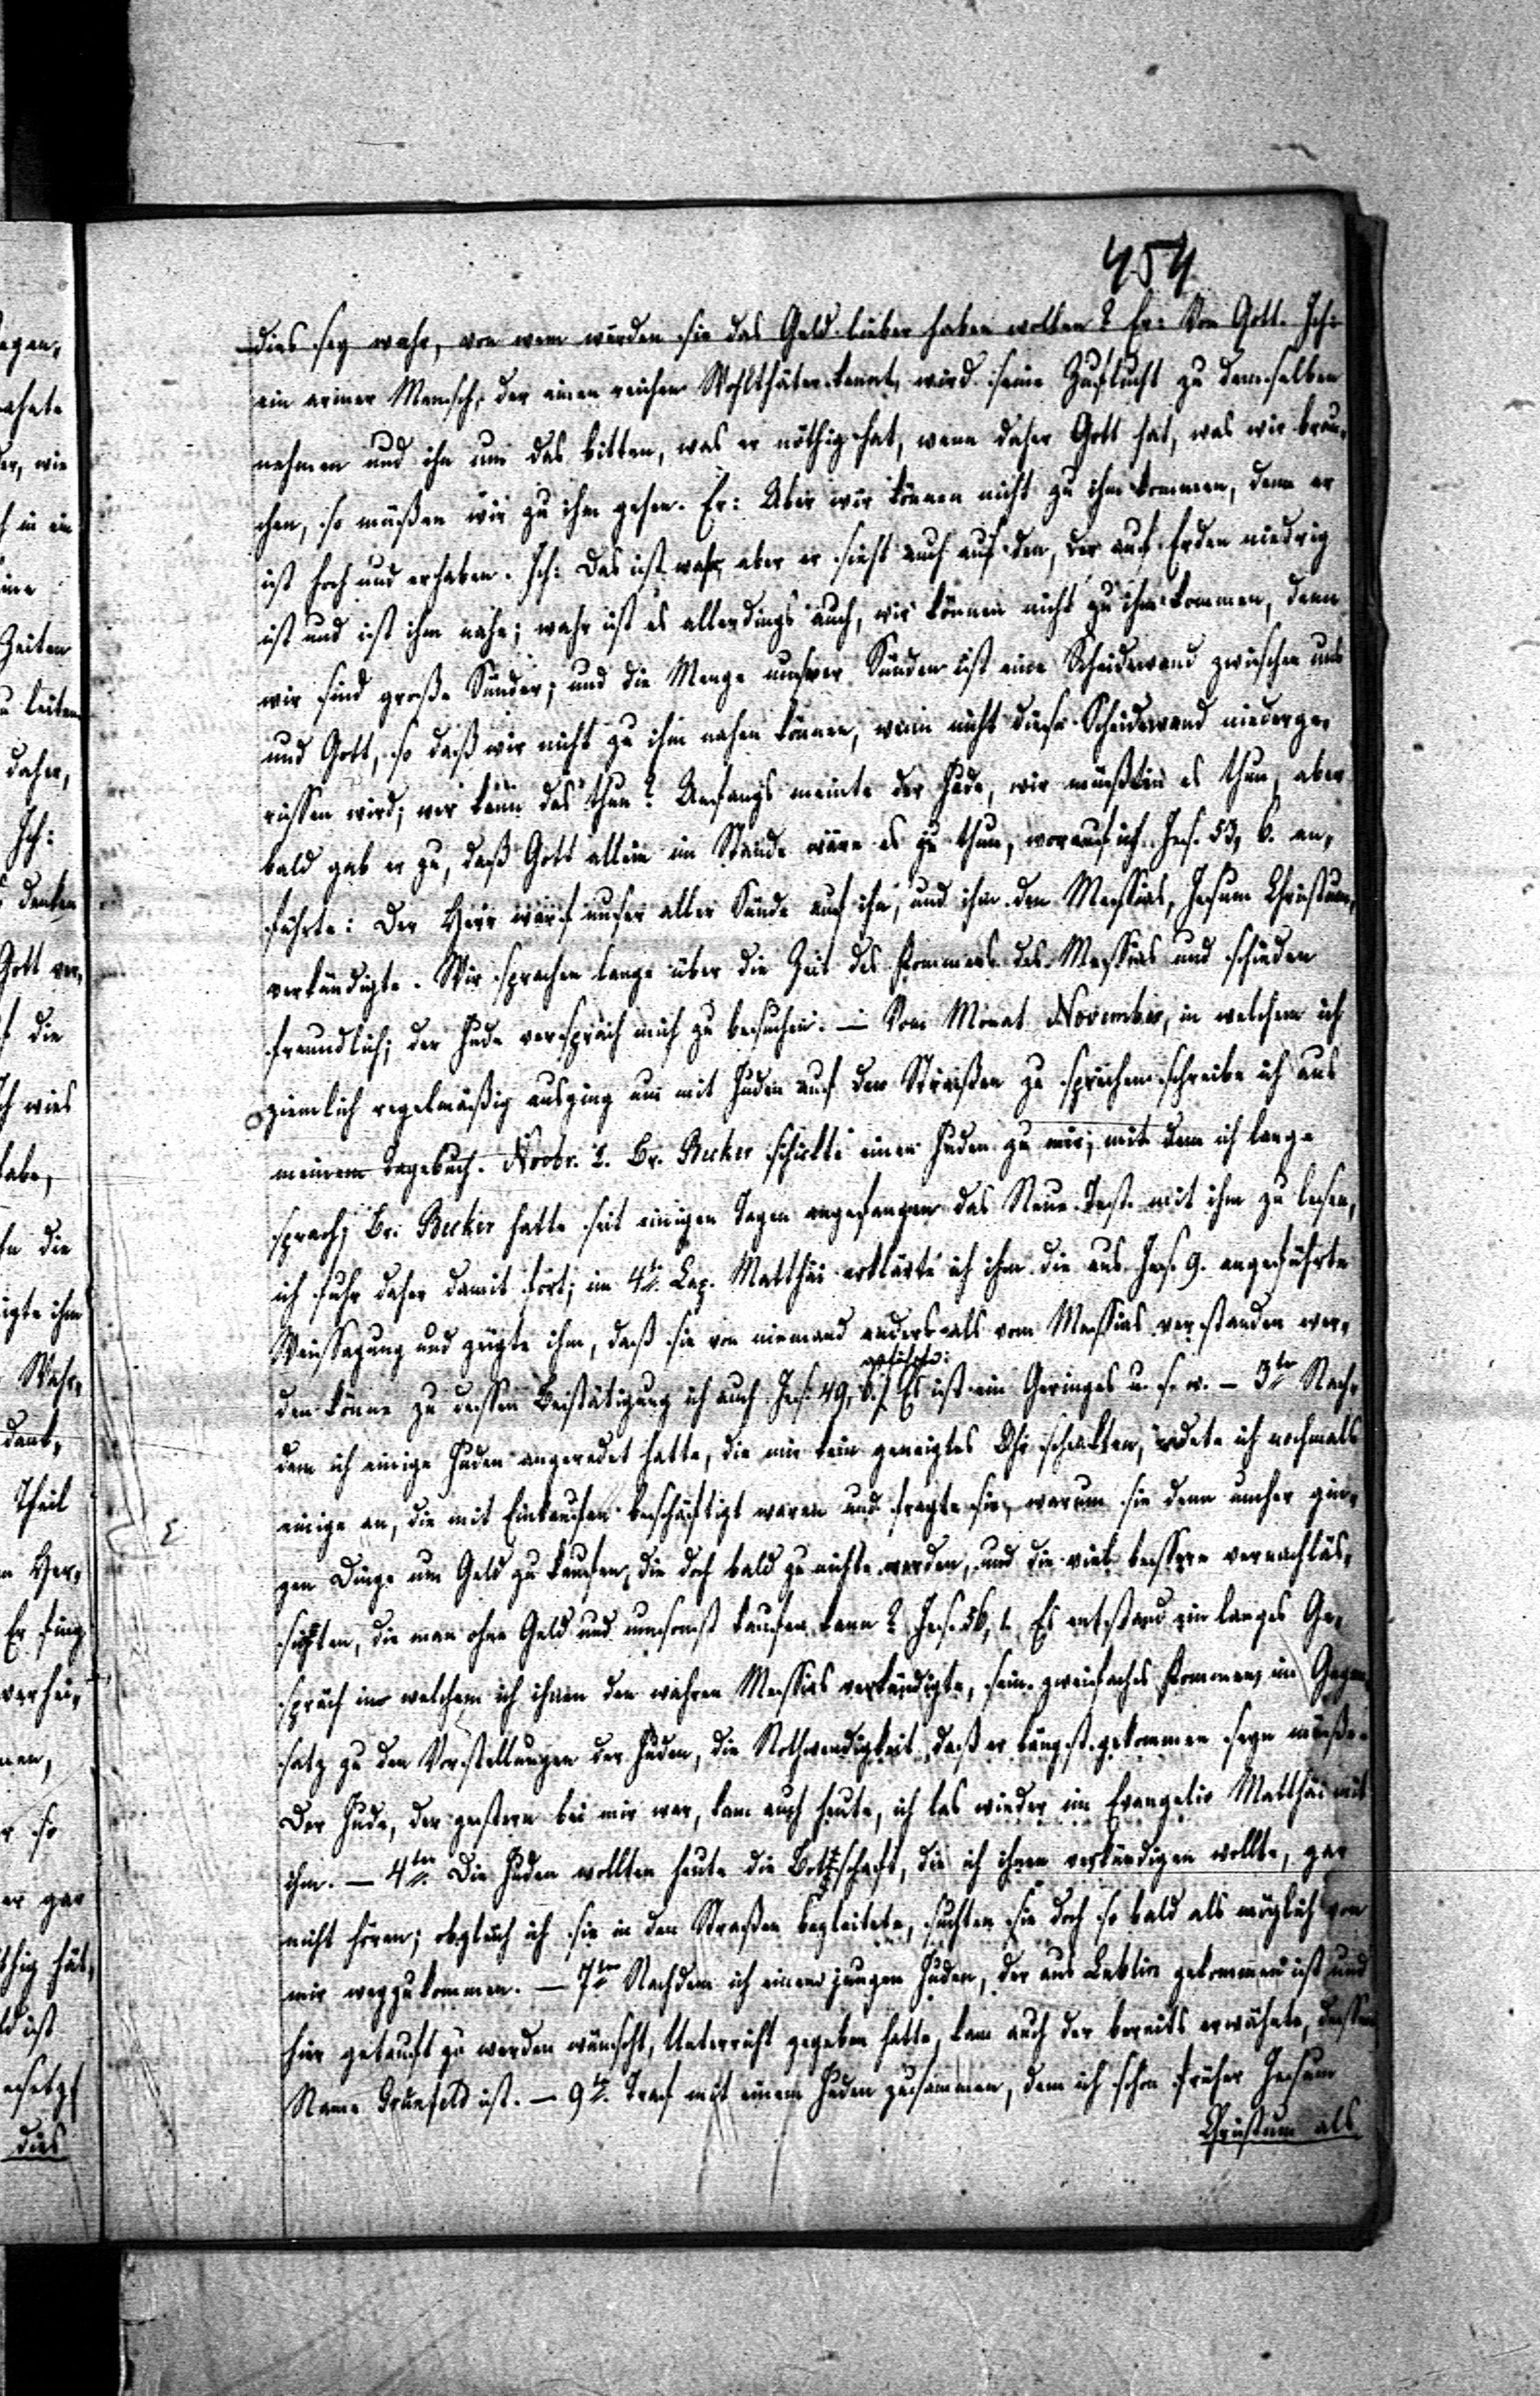 454
dies sey wahr, von wem würden sie das Geld lieber haben wollen? Er: Von Gott. Ich:
ein armer Mensch, der einen reichen Wohlthäter kennt, wird seine Zuflucht zu demselben
nehmen und ihn um das bitten, was er nöthig hat, wenn daher Gott hat, was wir brau-
chen, so müßen wir zu ihm gehen. Er: Aber wir können nicht zu ihm kommen, denn er
ist hoch und erhaben. Ich: Das ist wahr, aber er sieht auch auf den, der auf Erden niedrig
ist und ist ihm nahe; wahr ist es allerdings auch, wir können nicht zu ihm kommen, denn
wir sind große Sünder; und die Menge unsrer Sünden ist eine Scheidewand zwischen uns
und Gott, so daß wir nicht zu ihm nahen können, wenn nicht diese Scheidewand niederge-
rissen wird; wer kann das thun? Anfangs meinte der Jude, wir müßten es thun, aber
bald gab er zu, daß Gott allein im Stande wäre es zu thun, worauf ich Jes. 53, 6. an-
führte: Der Herr warf unser aller Sünde auf ihn, und ihm den Messias, Jesum Christum,
verkündigte. Wir sprachen lange über die Zeit des Kommens des Messias und schieden
freundlich; der Jude versprach mich zu besuchen. — Vom Monat November, in welchem ich
ziemlich regelmäßig ausging um mit Juden auf den Straßen zu sprechen schreibe ich aus
meinem Tagebuch. Novbr. 2. Br. Becker schickte einen Juden zu mir, mit dem ich lange
sprach; Br. Becker hatte seit einigen Tagen angefangen das Neue Test. mit ihm zu lesen,
ich fuhr daher damit fort; im 4t. Cap. Matthäi erklärte ich ihm die aus Jes. 9. angeführte
Weissagung und zeigte ihm, daß sie von niemand anders als vom Messias verstanden wer-
den könne zu dessen Bestätigung ich auch Jes. 49, 6. Es ist ein Geringes u. s. w. — 3te Nach-
dem ich einige Juden angeredet hatte, die mir kein geneigtes Ohr schenkten, redete ich nochmals
einige an, die mit Einkaufen beschäftigt waren und fragte sie, warum sie denn umher gin-
gen Dinge um Geld zu kaufen, die doch bald zu nichte werden, und die viel bessern vernachläs-
sigten, die man ohne Geld und umsonst kaufen kann? Jes. 1. Es entstand ein langes Ge-
spräch in welchem ich ihnen den wahren Messias verkündigte, sein zweifaches Kommen, im Gegen-
satz zu den Vorstellungen der Juden, die Nothwendigkeit, daß er längst gekommen seyn müße.
Der Jude, der gestern bei mir war, kam auch heute, ich las wieder im Evangelio Matthäi mit
ihm. — 4ten Die Juden wollten heute die Bothschaft, die ich ihnen verkündigen wollte, gar
nicht hören; obgleich ich sie in den Straßen begleitete, suchten sie doch so bald als möglich von
mir wegzukommen. — 7ten Nachdem ich einem jungen Juden, der aus Lublin gekommen ist und
hier getauft zu werden wünscht, Unterricht gegeben hatte, kam auch der bereits erwähnte, dessen
Name Grünfeld ist. — 9t. Traf mit einem Juden zusammen, dem ich schon früher Jesum
Christum als